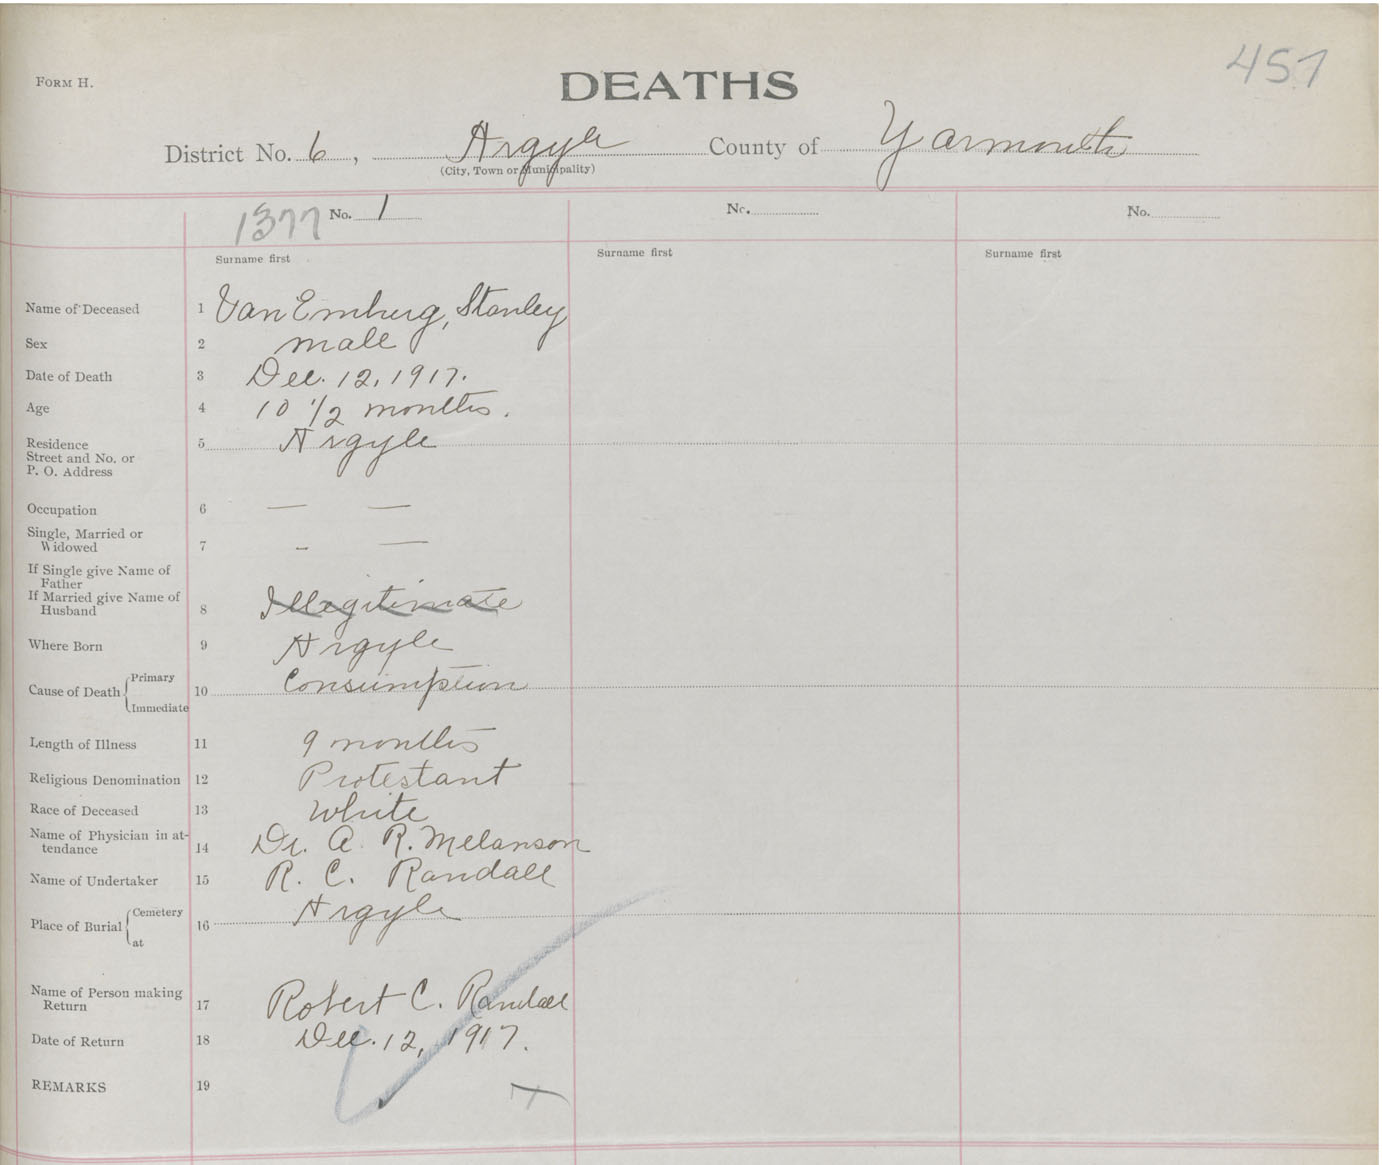 457
FORM H.
DEATHS
District No. 6, Argyle County of Yarmouth
(City, Town or Municipality)
1377 No. 1 No. No.
Surname first Surname first Surname first
Name of Deceased 1 Van Emburg, Stanley
Sex 2 male
Date of Death 3 Dec. 12, 1917.
Age 4 10 1/2 months.
Residence 5 Argyle
Street and No. or
P. O. Address
Occupation 6 — —
Single, Married or
Widowed 7 – —
If Single give Name of
Father
If Married give Name of
Husband 8 Illegitimate
Where Born 9 Argyle
Cause of Death { Primary
Immediate 10 Consumption
Length of Illness 11 9 months
Religious Denomination 12 Protestant
Race of Deceased 13 White
Name of Physician in at-
tendance 14 Dr. A. R. Melanson
Name of Undertaker 15 R. C. Randall
Place of Burial { Cemetery
at 16 Argyle
Name of Person making
Return 17 Robert C. Randall
Date of Return 18 Dec. 12, 1917.
REMARKS 19